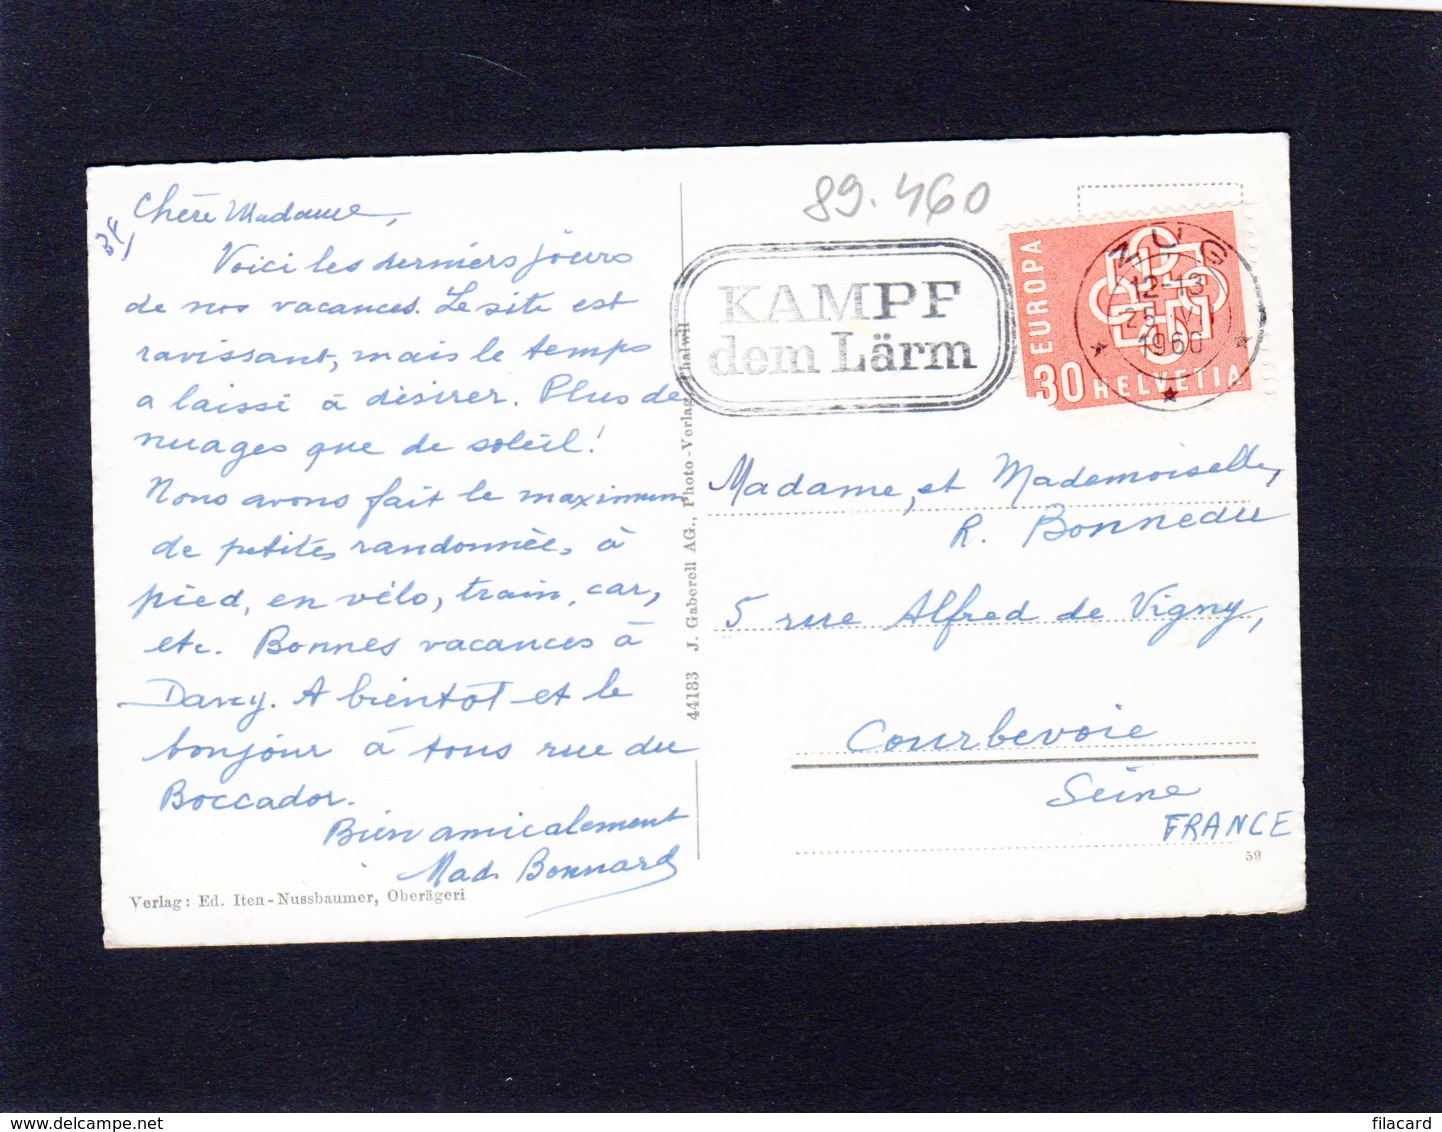 89.460
3F
Chère Madame,
Voici les derniers jours
de nos vacances. Le site est
ravissant, mais le temps
a laissé à désirer. Plus de
nuages que de soleil!
Nous avons fait le maximum
de petites randonnées à
pied, en vélo, train, car,
etc. Bonnes vacances à
Darcy. A bientôt et le
bonjour à tous rue du
Boccador.
Bien amicalement
Mad. Bonnard
Verlag: Ed. Iten-Nussbaumer, Oberägeri
44183 J. Gaberell AG., Photo-Verlag, Thalwil
KAMPF
dem Lärm
ZUG
12-13
25.
1960
EUROPA
30 HELVETIA
Madame, et Mademoiselle,
R. Bonnedu
5 rue Alfred de Vigny,
Courbevoie
Seine
FRANCE
59
filacard